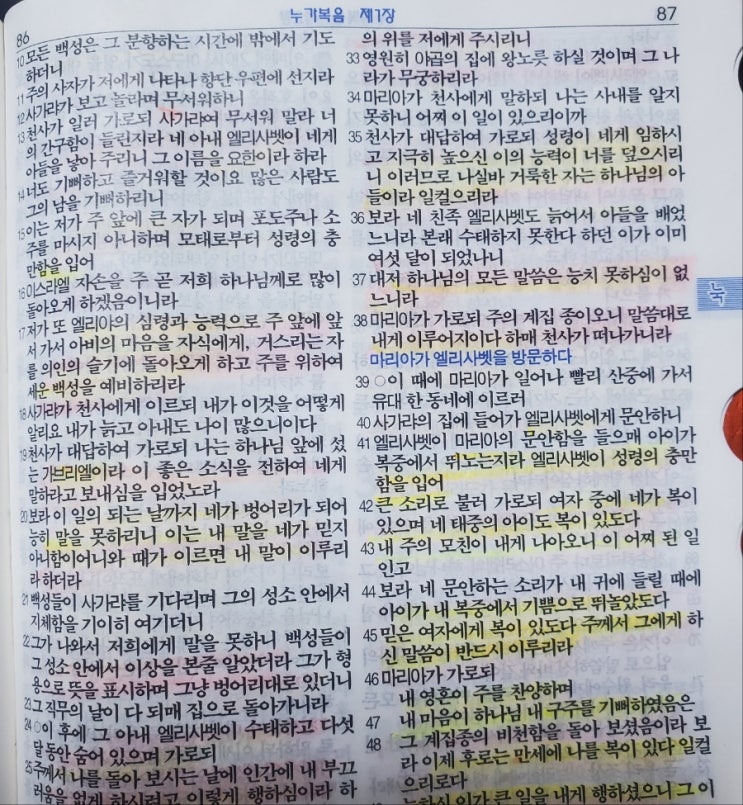 86
누가복음 제1장
87
10 모든 백성은 그 분향하는 시간에 밖에서 기도
하더니
11 주의 사자가 저에게 나타나 향단 우편에 선지라
12 사가랴가 보고 놀라며 무서워하니
13 천사가 일러 가로되 사가랴여 무서워 말라 너
의 간구함이 들린지라 네 아내 엘리사벳이 네게
아들을 낳아 주리니 그 이름을 요한이라 하라
14 너도 기뻐하고 즐거워할 것이요 많은 사람도
그의 남을 기뻐하리니
15 이는 저가 주 앞에 큰 자가 되며 포도주나 소
주를 마시지 아니하며 모태로부터 성령의 충
만함을 입어
16 이스라엘 자손을 주 곧 저희 하나님께로 많이
돌아오게 하겠음이니라
17 저가 또 엘리야의 심령과 능력으로 주 앞에 앞
서 가서 아비의 마음을 자식에게, 거스리는 자
를 의인의 슬기에 돌아오게 하고 주를 위하여
세운 백성을 예비하리라
18 사가랴가 천사에게 이르되 내가 이것을 어떻게
알리요 내가 늙고 아내도 나이 많으니이다
19 천사가 대답하여 가로되 나는 하나님 앞에 섰
는 가브리엘이라 이 좋은 소식을 전하여 네게
말하라고 보내심을 입었노라
20 보라 이 일의 되는 날까지 네가 벙어리가 되어
능히 말을 못하리니 이는 내 말을 네가 믿지
아니함이어니와 때가 이르면 내 말이 이루리
라 하더라
21 백성들이 사가랴를 기다리며 그의 성소 안에서
지체함을 기이히 여기더니
22 그가 나와서 저희에게 말을 못하니 백성들이
그 성소 안에서 이상을 본줄 알았더라 그가 형
용으로 뜻을 표시하며 그냥 벙어리대로 있더니
23 그 직무의 날이 다 되매 집으로 돌아가니라
24 ○이 후에 그 아내 엘리사벳이 수태하고 다섯
달 동안 숨어 있으며 가로되
25 주께서 나를 돌아 보시는 날에 인간에 내 부끄
러움을 없게 하시려고 이렇게 행하심이라 하
의 위를 저에게 주시리니
33 영원히 야곱의 집에 왕노릇 하실 것이며 그 나
라가 무궁하리라
34 마리아가 천사에게 말하되 나는 사내를 알지
못하니 어찌 이 일이 있으리이까
35 천사가 대답하여 가로되 성령이 네게 임하시
고 지극히 높으신 이의 능력이 너를 덮으시리
니 이러므로 나실바 거룩한 자는 하나님의 아
들이라 일컬으리라
36 보라 네 친족 엘리사벳도 늙어서 아들을 배었
느니라 본래 수태하지 못한다 하던 이가 이미
여섯 달이 되었나니
37 대저 하나님의 모든 말씀은 능치 못하심이 없
느니라
38 마리아가 가로되 주의 계집 종이오니 말씀대로
내게 이루어지이다 하매 천사가 떠나가니라
마리아가 엘리사벳을 방문하다
39 ○이 때에 마리아가 일어나 빨리 산중에 가서
유대 한 동네에 이르러
40 사가랴의 집에 들어가 엘리사벳에게 문안하니
41 엘리사벳이 마리아의 문안함을 들으매 아이가
복중에서 뛰노는지라 엘리사벳이 성령의 충만
함을 입어
42 큰 소리로 불러 가로되 여자 중에 네가 복이
있으며 네 태중의 아이도 복이 있도다
43 내 주의 모친이 내게 나아오니 이 어찌 된 일
인고
44 보라 네 문안하는 소리가 내 귀에 들릴 때에
아이가 내 복중에서 기쁨으로 뛰놀았도다
45 믿은 여자에게 복이 있도다 주께서 그에게 하
신 말씀이 반드시 이루리라
46 마리아가 가로되
내 영혼이 주를 찬양하며
47 내 마음이 하나님 내 구주를 기뻐하였음은
48 그 계집종의 비천함을 돌아 보셨음이라 보
라 이제 후로는 만세에 나를 복이 있다 일컬
으리로다
능하신 이가 큰 일을 내게 행하셨으니 그 이
눅